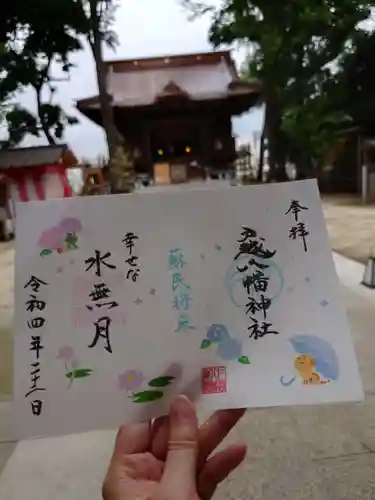 奉拝
越八幡神社
蘇民将来
幸せな
水無月
令和四年
二十三日